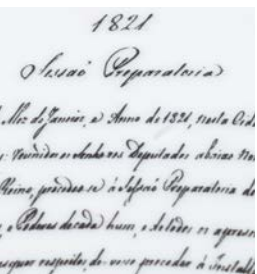 1821
Sessaõ Preparatoria
Mez de Janeiro, e Anno de 1821, nesta Cid
Reunidos os Senhores Deputados
Reino, procedeo-se á Sessaõ Preparatoria de
e Poderes de cada hum, e de todos os apresen
respeitos